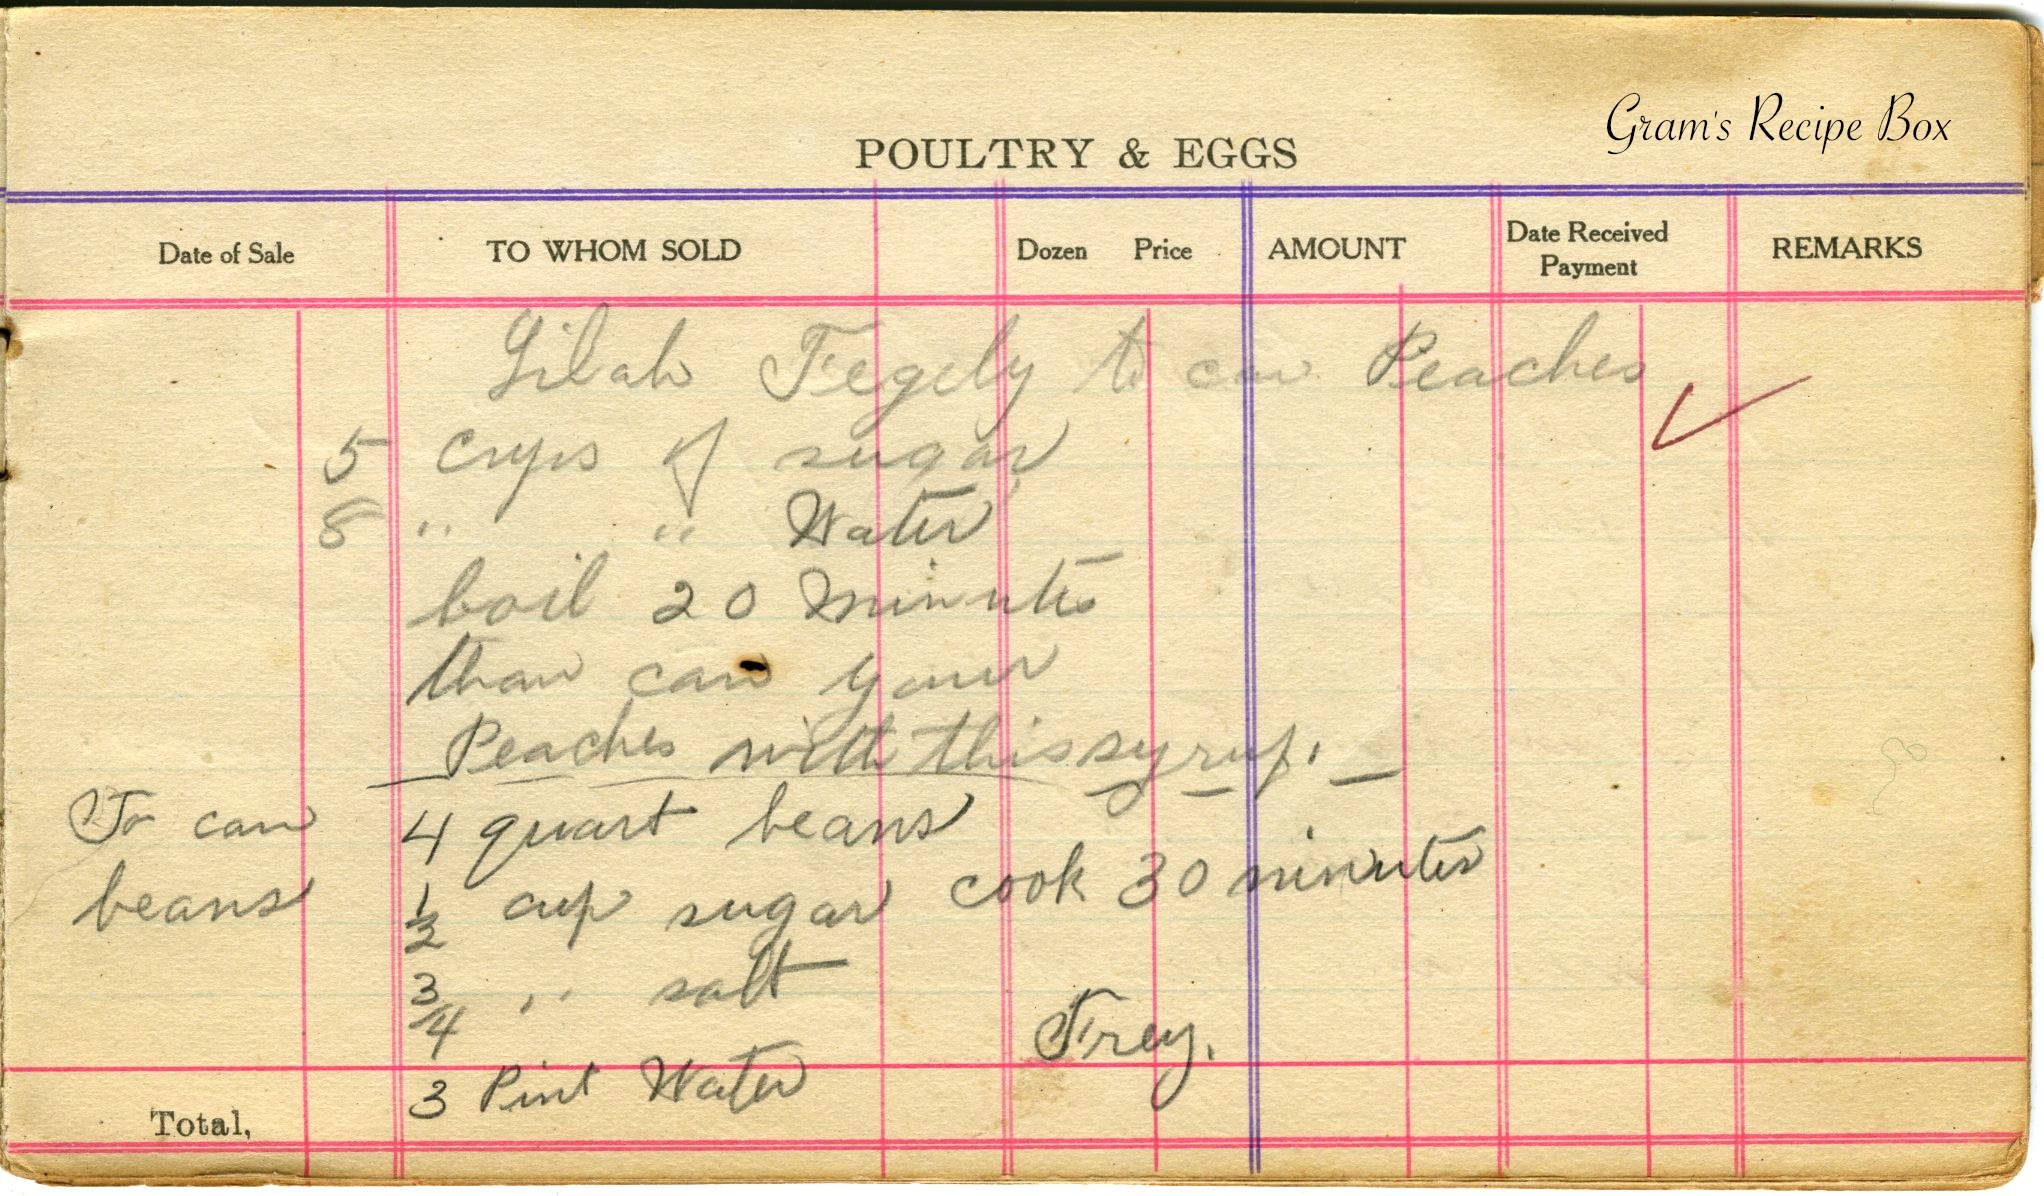 Gram's Recipe Box
POULTRY & EGGS
Date of Sale TO WHOM SOLD Dozen Price AMOUNT Date Received Payment REMARKS
Lilah Fegely to can Peaches
5 cups of sugar
8 " " Water
boil 20 minutes
than can your
Peaches with this syrup.
To can beans
4 quart beans
1/2 cup sugar cook 30 minutes
3/4 " salt
Frey.
3 Pint Water
Total,